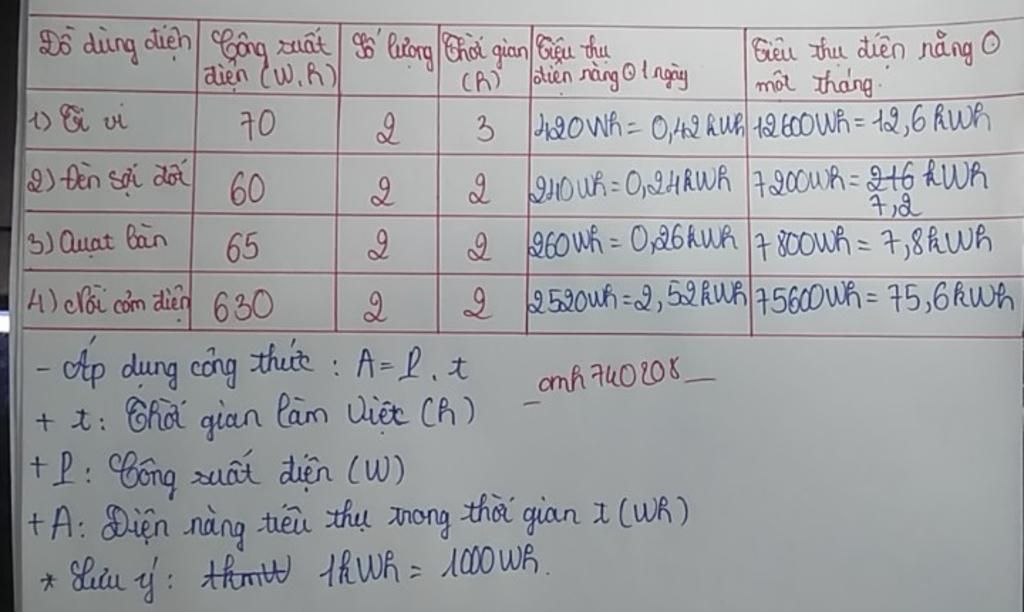 Đồ dùng điện | Công xuất điện (W.h) | Số lượng | Thời gian (h) | Tiêu thụ điện năng ở 1 ngày | Tiêu thụ điện năng ở một tháng.
1) Ti vi | 70 | 2 | 3 | 420Wh = 0,42kWh | 12600Wh = 12,6kWh
2) Đèn sợi đốt | 60 | 2 | 2 | 240Wh = 0,24kWh | 7200Wh = 216 kWh 7,2
3) Quạt bàn | 65 | 2 | 2 | 260Wh = 0,26kWh | 7800Wh = 7,8kWh
4) Nồi cơm điện | 630 | 2 | 2 | 2520Wh = 2,52kWh | 75600Wh = 75,6kWh
- Áp dụng công thức : A = P. t
_ omh740208 _
+ t: Thời gian làm việc (h)
+ P: Công xuất điện (W)
+ A: Điện năng tiêu thụ trong thời gian t (Wh)
* Lưu ý: 1kWh = 1000Wh.